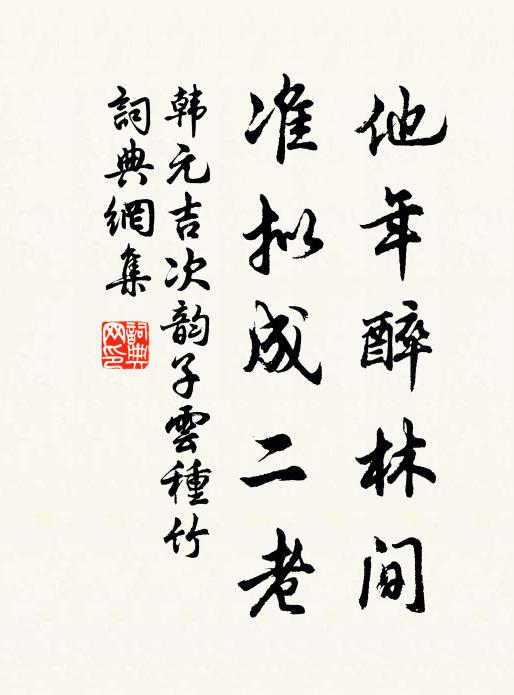 他年醉林间
准拟成二老
韩元吉次韵子雲種竹
詞典網集
詞典网印